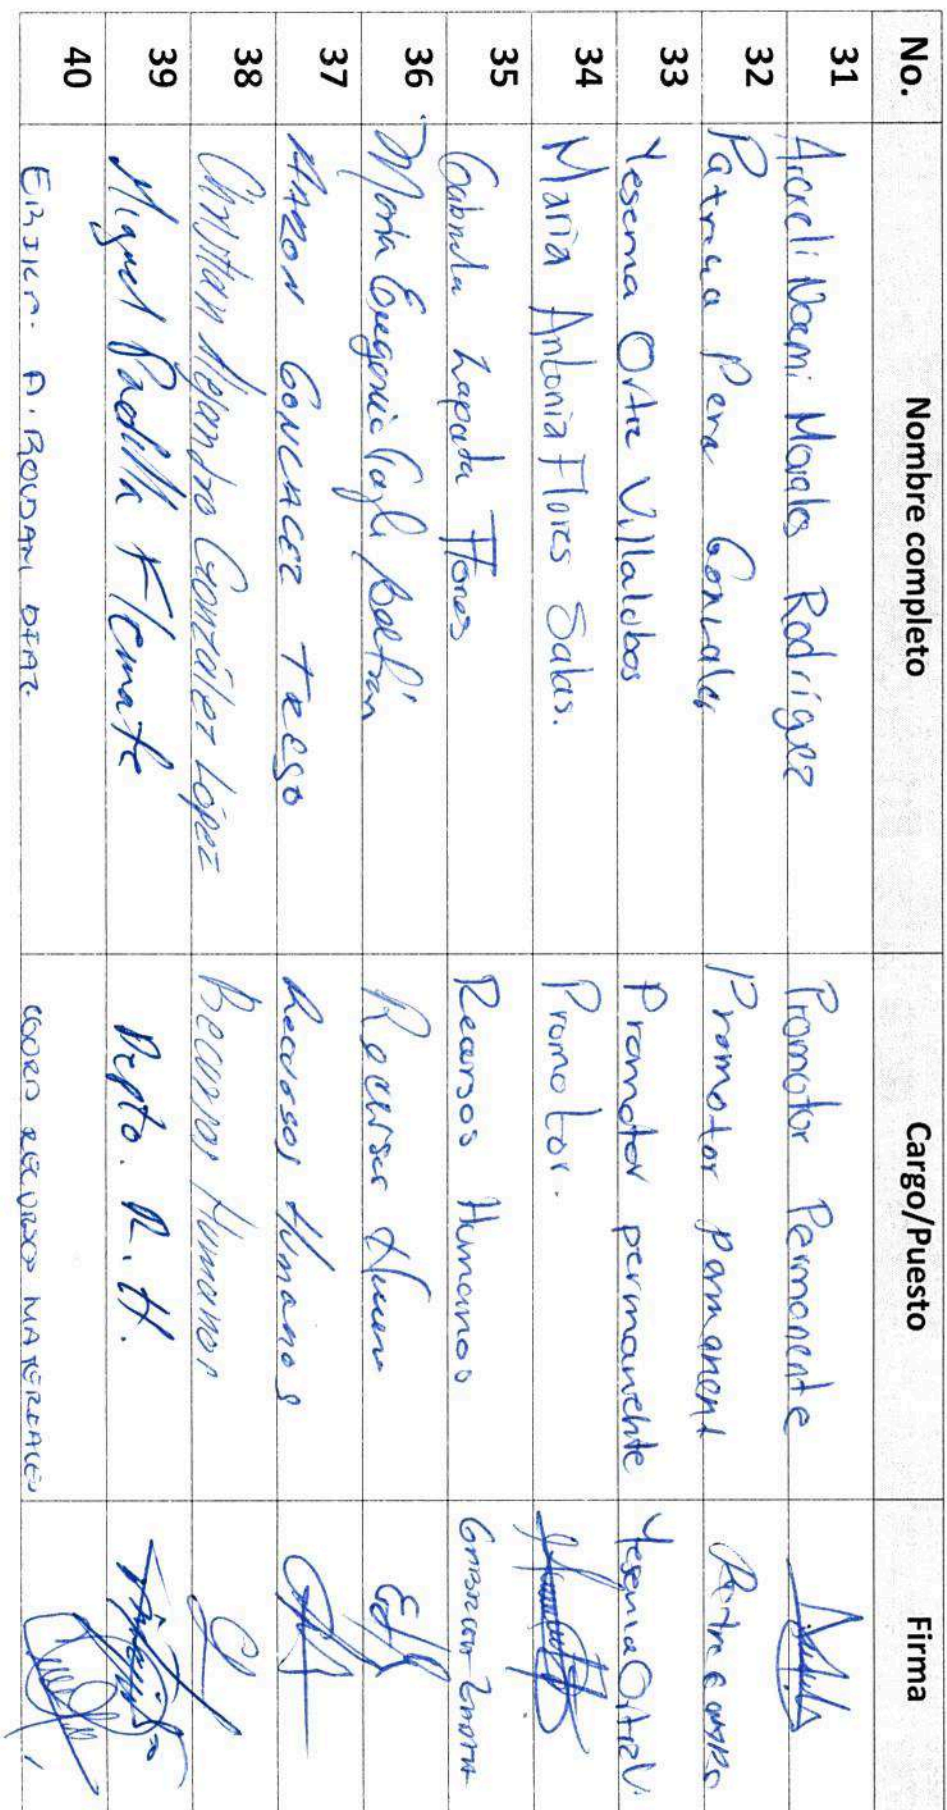 No. Nombre completo Cargo/Puesto Firma
31 Araceli Noemi Morales Rodríguez Promotor Permanente
32 Patricia Pena Gonzales Promotor permanent
33 Yesenia Ortiz Villalobos Promotor permanente Yesenia Ortiz V.
34 Maria Antonia Flores Salas. Promotor.
35 Gabriela Zapata Flores Recursos Humanos
36 Maria Eugenia Beltrán
37 Aaron Gonzalez Trejo Recursos Humanos
38 Christian Alejandro González López Recursos Humanos
39 Miguel Padilla Klemate Depto. R. H.
40 A. Roldan Diaz Coord Recursos Materiales